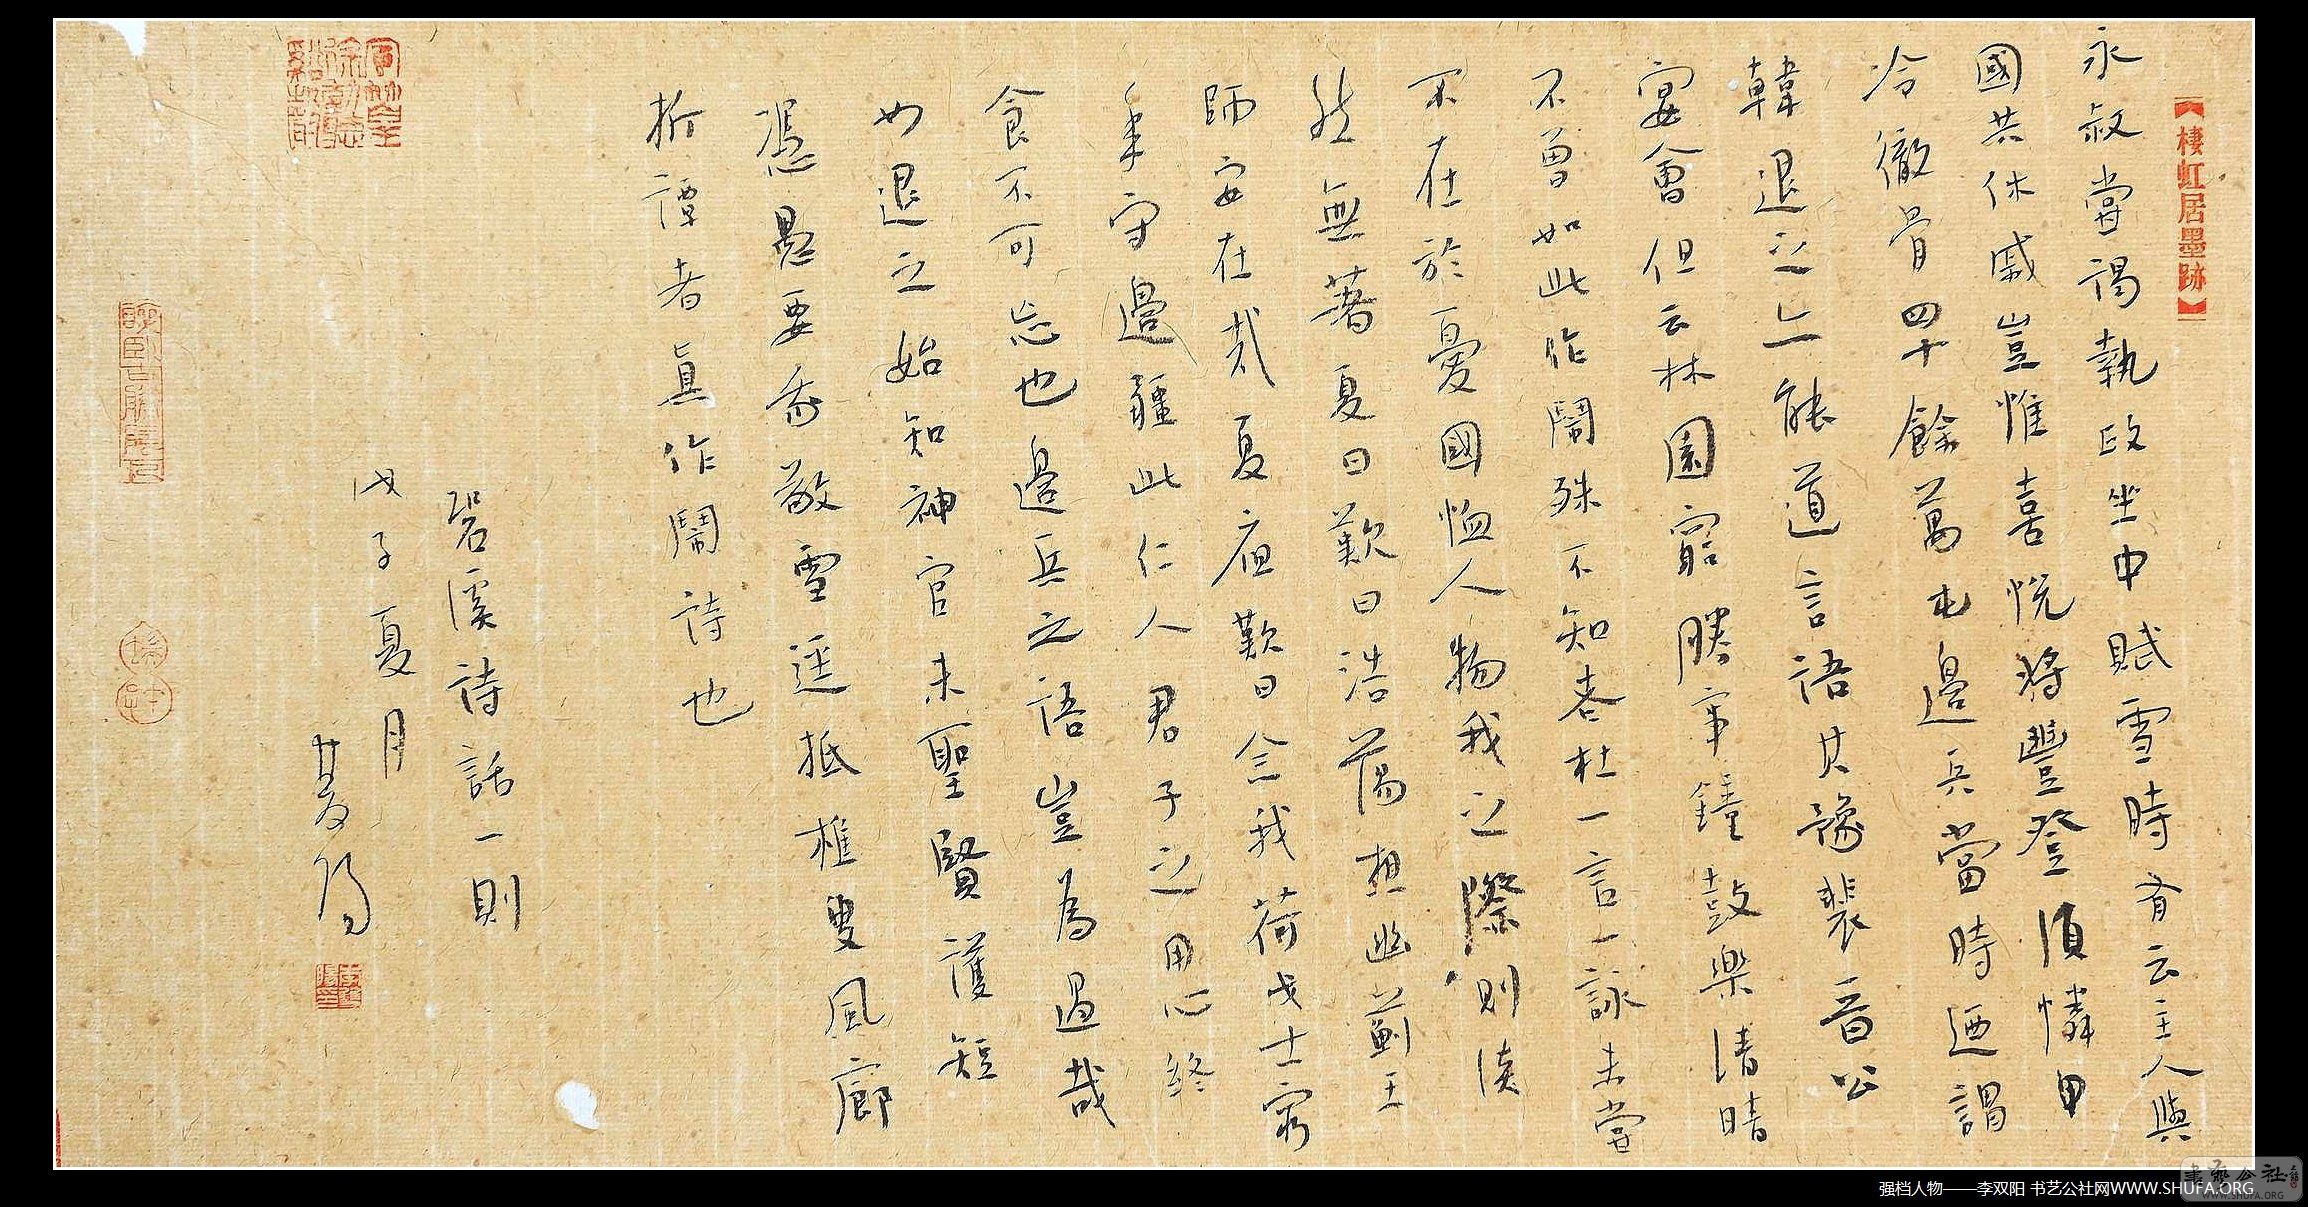 棲虹居墨跡
永叔嘗謁執政坐中賦雪時有云主人與
國共休戚豈惟喜悅將豐登須憐甲
冷徹骨四十餘萬屯邊兵當時迺謂
韓退之上能道言語其豫裴晉公
宴會但云林園窮勝事鐘鼓樂清時
不曾如此作鬧殊不知老杜一言一詠未嘗
不在於憂國恤人物我之際則淡
然無著夏日歎曰浩蕩想幽薊王
師安在哉夏夜歎曰念我荷戈士窮
年守邊疆此仁人君子之用心終
食不可忘也邊兵之語豈為過哉
如退之始知神官未聖賢護短
憑愚要我敬雪逕抵樵叟風廊
折譚者真作鬧詩也
䂬溪詩話一則
戊子夏月
强档人物——李双阳 书艺公社网WWW.SHUFA.ORG
書藝公社
WWW.SHUFA.ORG